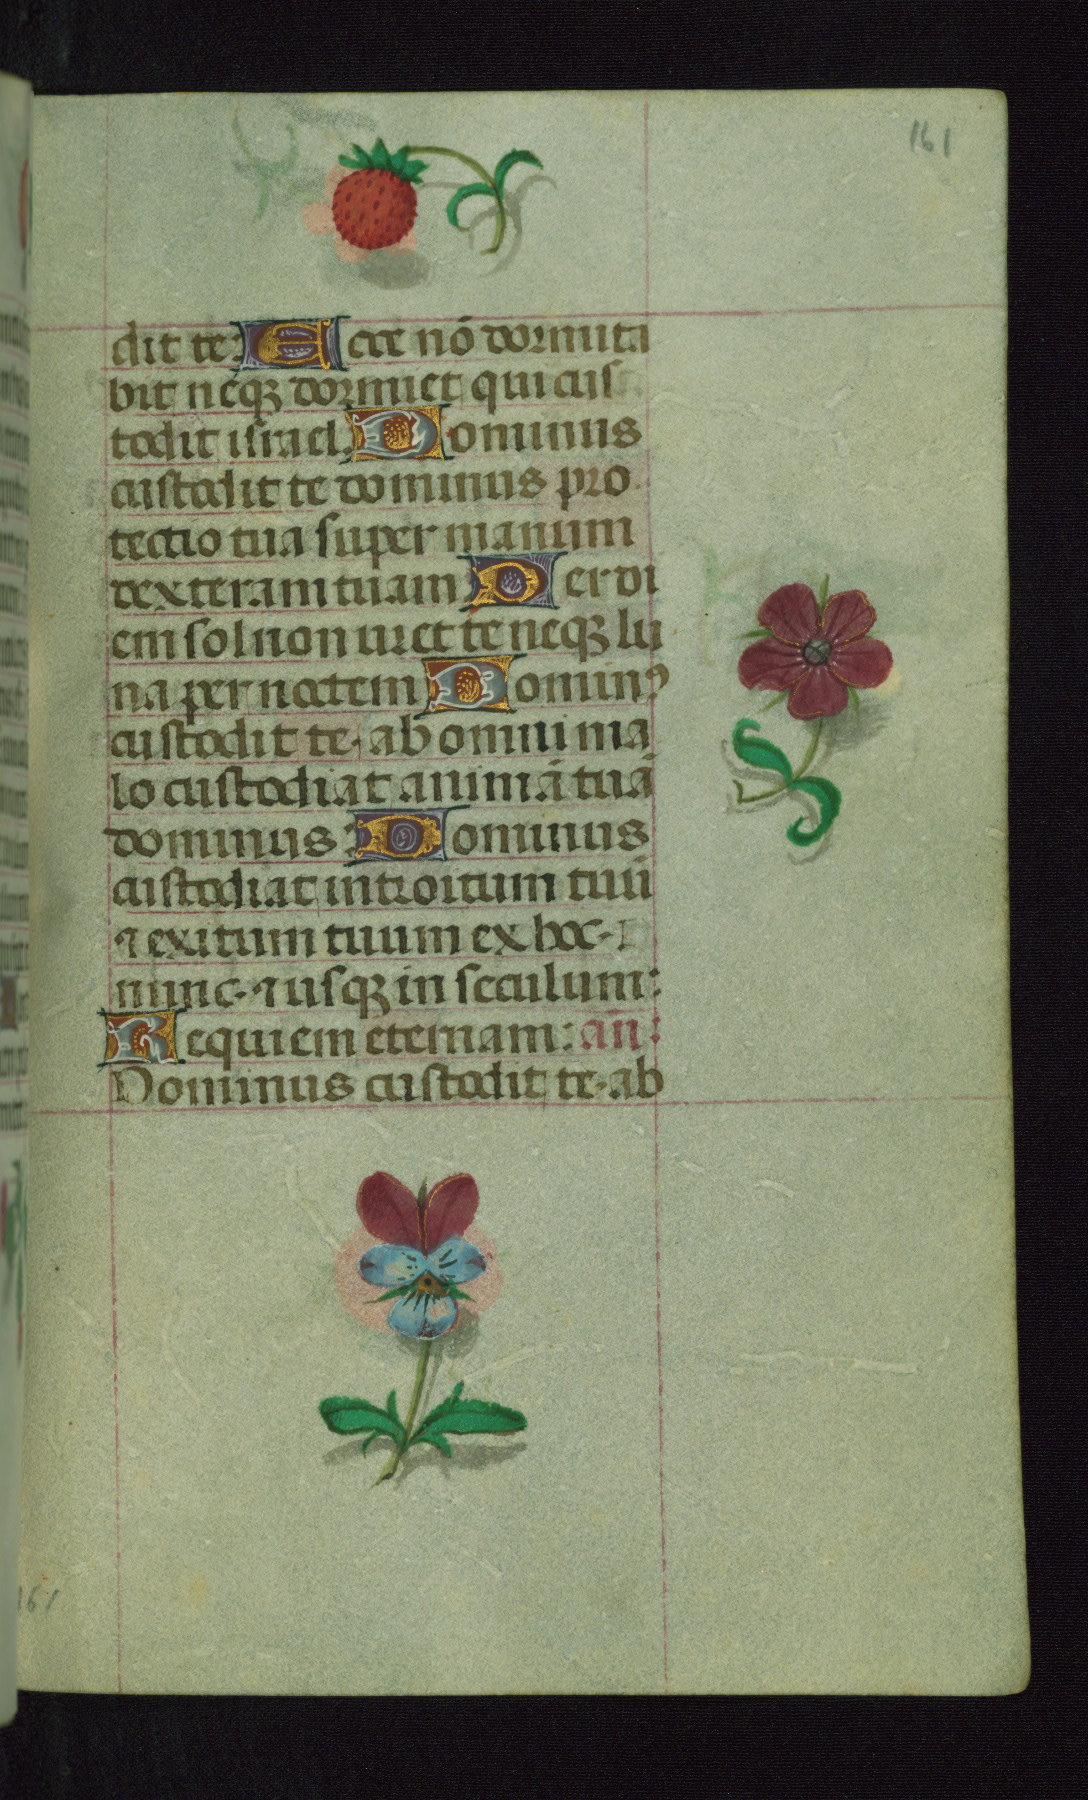 161
dit te: Ecce nō dormita
bit neqꝫ dormiet qui cus
todit israel. Dominus
custodit te dominus pro
tectio tua super manum
dexteram tuam Per di
em sol non uret te neqꝫ lu
na per noctem Dominꝰ
custodit te. ab omni ma
lo custodiat animā tuā
dominus: Dominus
custodiat introitum tuū
⁊ exitum tuum ex hoc.
nunc. ⁊ usqꝫ in seculum:
Requiem eternam: añ:
Dominus custodit te. ab
161